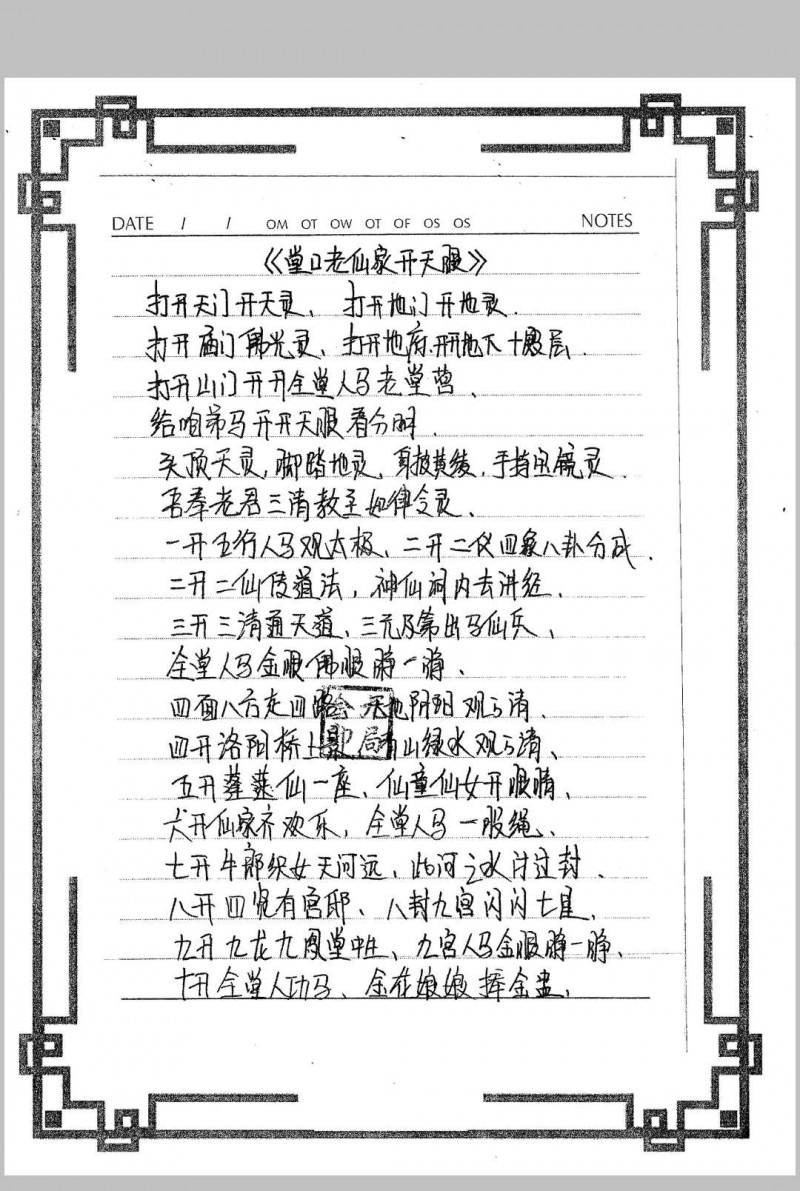 DATE / / OM OT OW OT OF OS OS NOTES
《堂口老仙家开天眼》
打开天门开天灵、打开地门开地灵.
打开庙门佛光灵、打开地府.开开地下十八层.
打开山门开开全堂人马老堂营、
给咱弟马开开天眼看分明.
头顶天灵,脚踏地灵,身披黄绫,手持宝镜灵.
吾奉老君三清教主如律令灵、
一开五行人马观太极、二开二仪四象八卦分成.
二开二仙传道法,神仙洞内去讲经、
三开三清通天道、三元及第出马仙兵、
全堂人马金眼佛眼睁一睁、
四面八方走四路 天地阴阳观分清、
四开洛阳桥上 山绿水观分清、
五开蓬莱仙一座、仙童仙女开眼睛、
六开仙家齐欢乐,全堂人马一股绳、
七开牛郎织女天河远,此河之水 过封.
八开四 有宫邸、八封九宫闪闪七星、
九开九龙九凤堂中生、九宫人马金眼睁一睁、
十开全堂人功马、金花娘娘捧金盅、
局